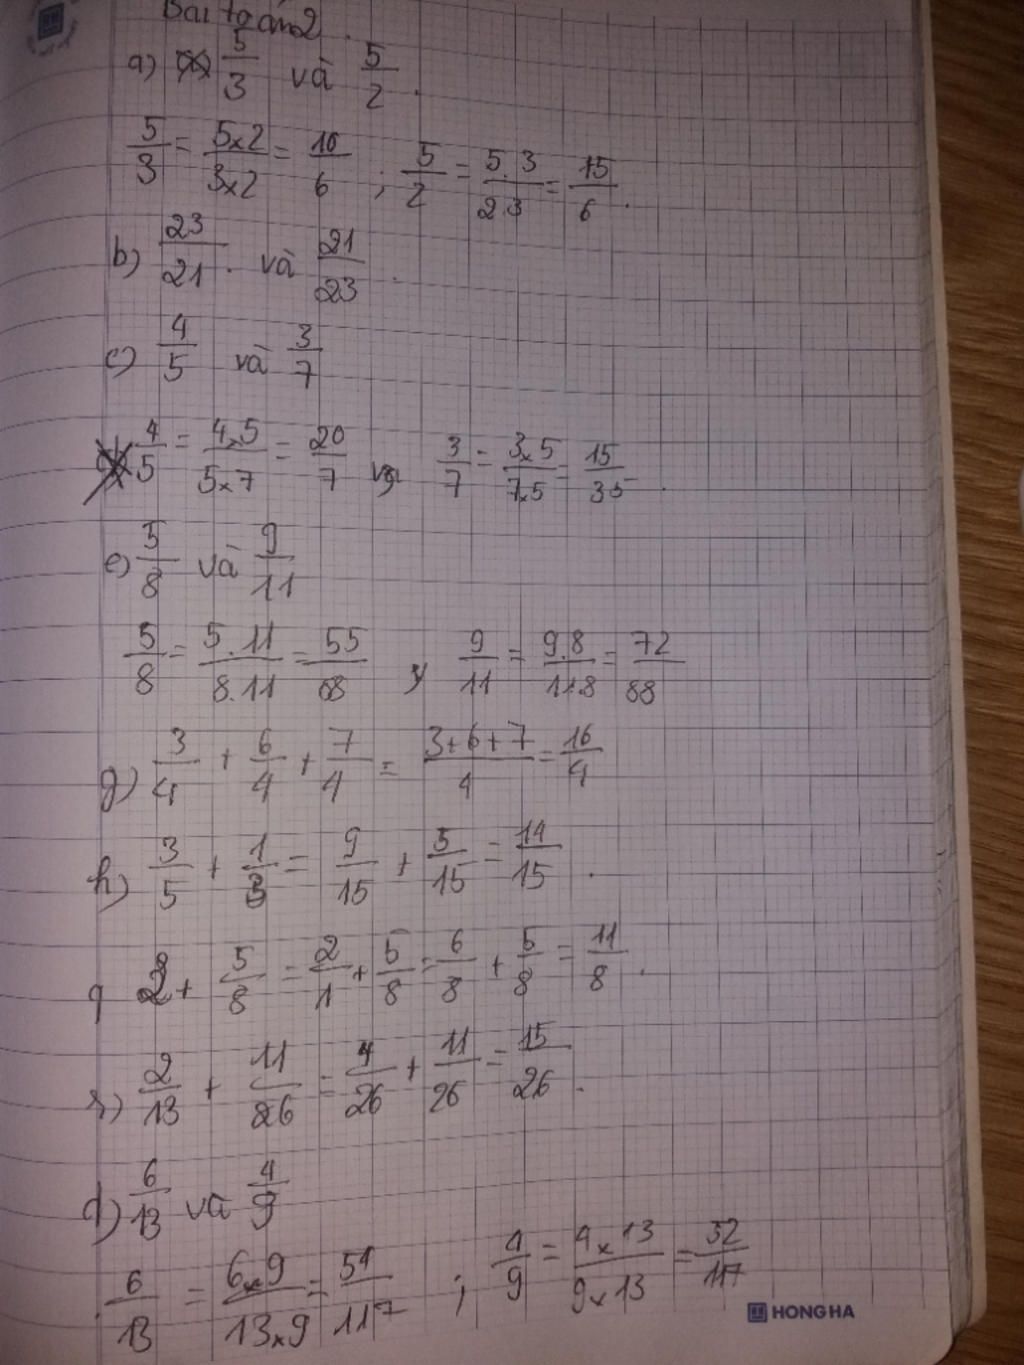 Bài toán 2.
a) 5/3 và 5/2.
5/3 = 5x2/3x2 = 10/6 ; 5/2 = 5.3/2.3 = 15/6.
b) 23/21. và 21/23.
c) 4/5 và 3/7
4/5 = 4x5/5x7 = 20/7 và 3/7 = 3x5/7x5 = 15/35.
e) 5/8 và 9/11
5/8 = 5.11/8.11 = 55/68 ; 9/11 = 9.8/11.8 = 72/88
g) 3/4 + 6/4 + 7/4 = 3+6+7/4 = 16/4
h) 3/5 + 1/3 = 9/15 + 5/15 = 14/15.
q 2 + 5/8 = 2/1 + 5/8 = 6/8 + 5/8 = 11/8.
r) 2/13 + 11/26 = 4/26 + 11/26 = 15/26.
d) 6/13 và 4/9
6/13 = 6x9/13x9 = 51/117 ; 4/9 = 4x13/9x13 = 52/117
HONG HA